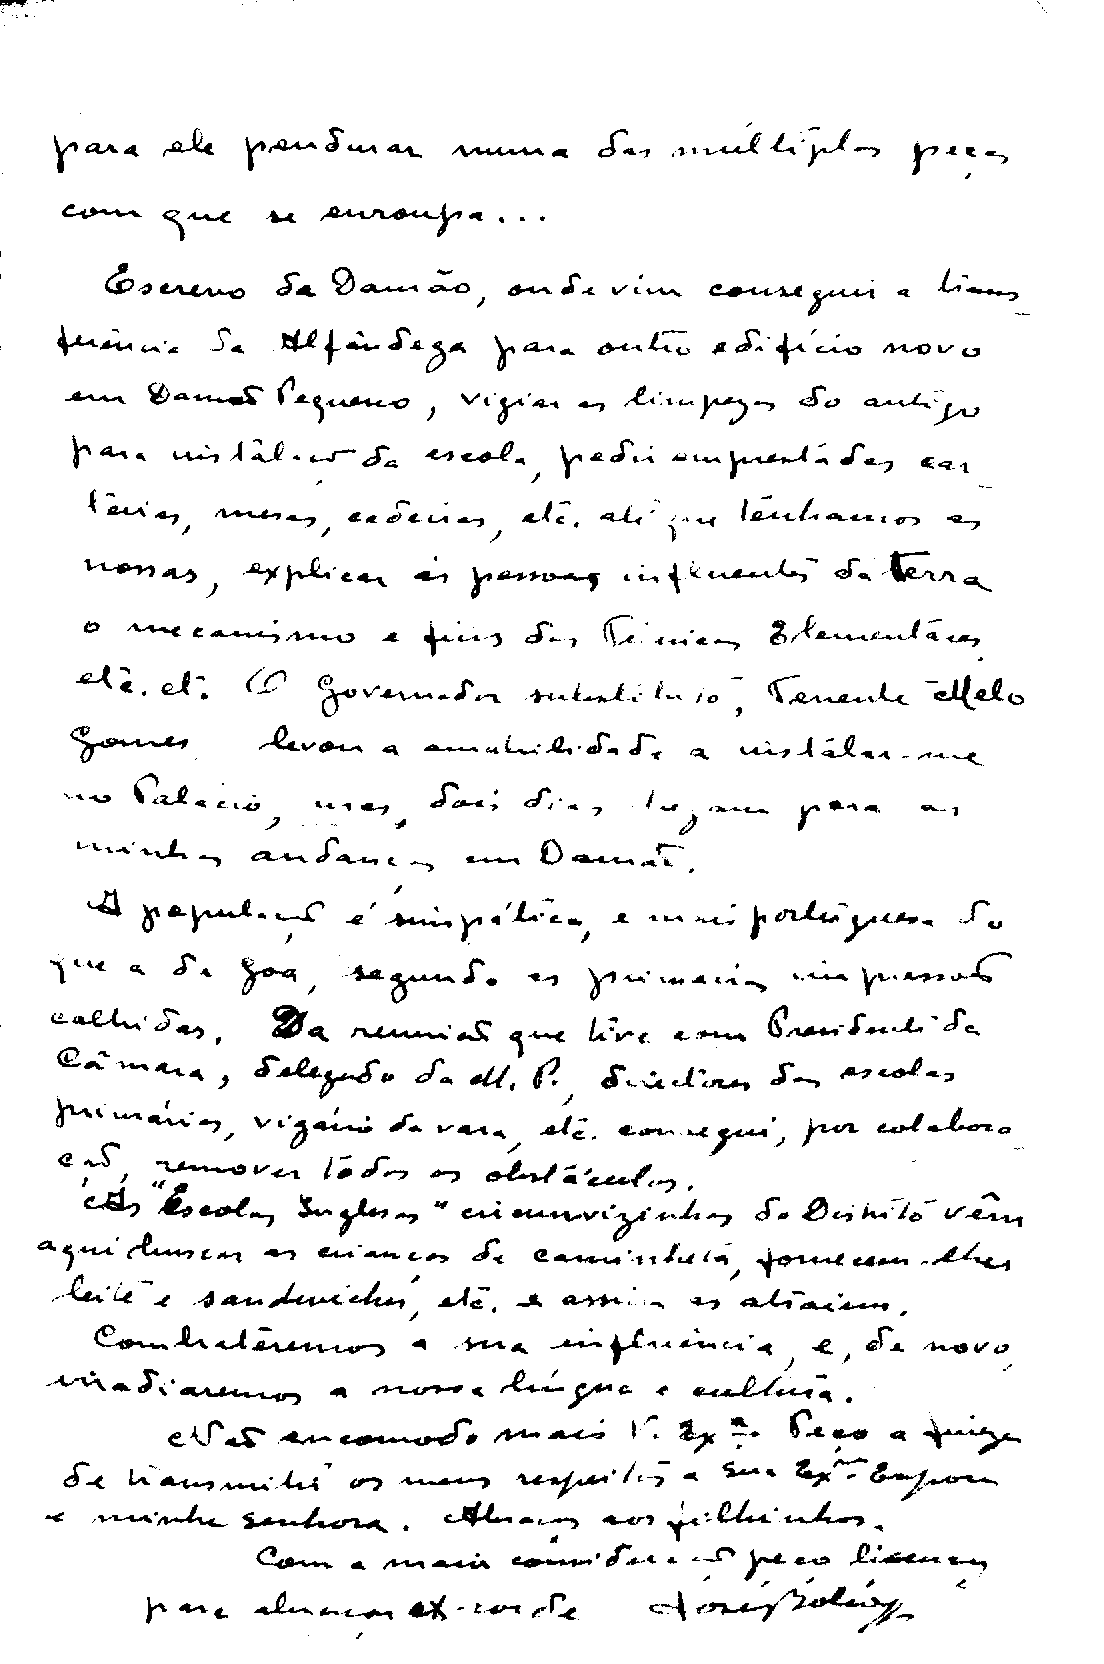 para ele pendurar numa das múltiplas peças
com que se enroupa...
Escrevo de Damão, onde vim conseguir a trans-
ferência da Alfândega para outro edifício novo
em Damão Pequeno, vigiar as limpezas do antigo
para instalação da escola, pedir emprestadas car-
teiras, mesas, cadeiras, etc. até que tenhamos as
nossas, explicar às pessoas influentes da Terra
o mecanismo e fins das Técnicas Elementares,
etc. etc. O Governador substituto, Tenente Melo
Gomes levou a amabilidade a instalar-me
no Palácio, mas, dois dias chegam para as
minhas andanças em Damão.
A população é simpática, e mais portuguesa do
que a de Goa, segundo as primeiras impressões
colhidas. Da reunião que tive com Presidente da
Câmara, delegado da M. P., directores das escolas
primárias, vigário da vara, etc. consegui, por colabora-
ção, remover todos os obstáculos.
As "Escolas Inglesas" circunvizinhas do Distrito vêm
aqui buscar as crianças de caminheta, fornecem-lhes
leite e sandwiches, etc. e assim as atraiem.
Combateremos a sua influência, e, de novo,
irradiaremos a nossa língua e cultura.
Não encomodo mais V. Exª. Peço a fineza
de transmitir os meus respeitos a Sua Exma Esposa
e minha senhora. Abraços aos filhinhos.
Com a maior consideração peço licença
para abraçar ex-corde José Boléo